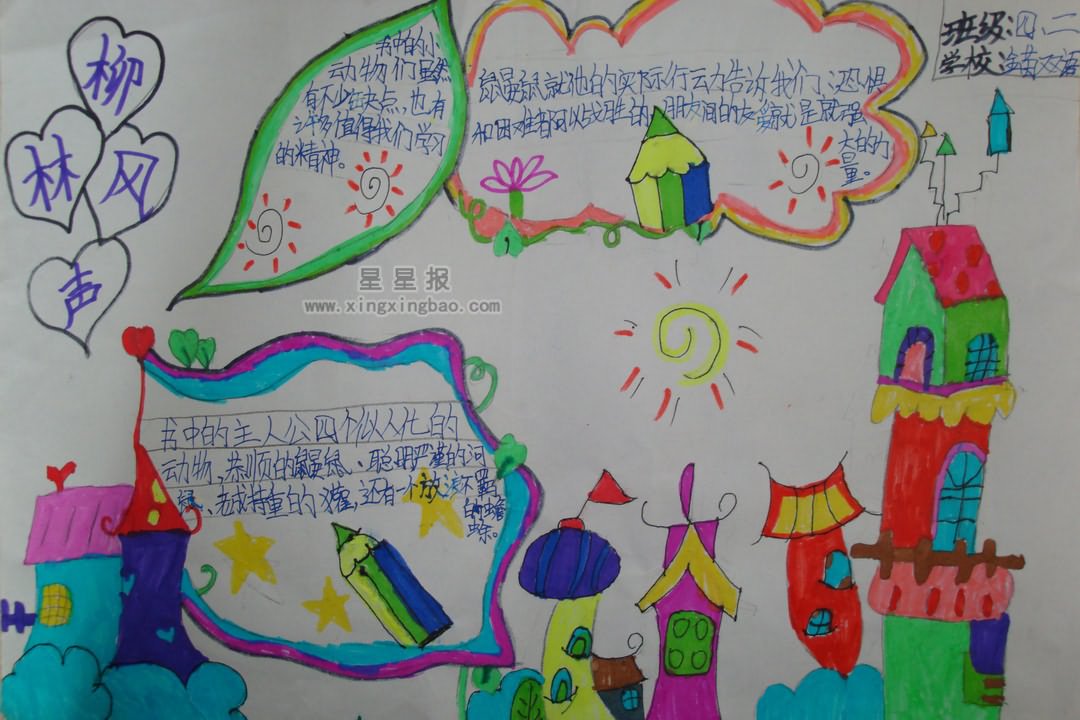 柳
林
风
声
书中的小
动物们虽然
有不少缺点,也有
许多值得我们学习
的精神。
鼹鼠就他的实际行动告诉我们、恐惧
和困难都可以战胜的,朋友间的友爱就是最强
大的力
量。
班级:四、二
学校:
双语
星星报
www.xingxingbao.com
书中的主人公四个似人化的
动物,恭顺的鼹鼠、聪明严谨的河
鼠、老成持重的獾,还有一个放浪不羁
的蟾
蜍。